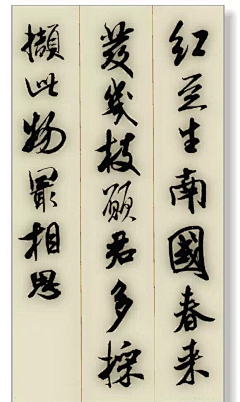 红豆生南國春来
发幾枝願君多採
擷此物最相思